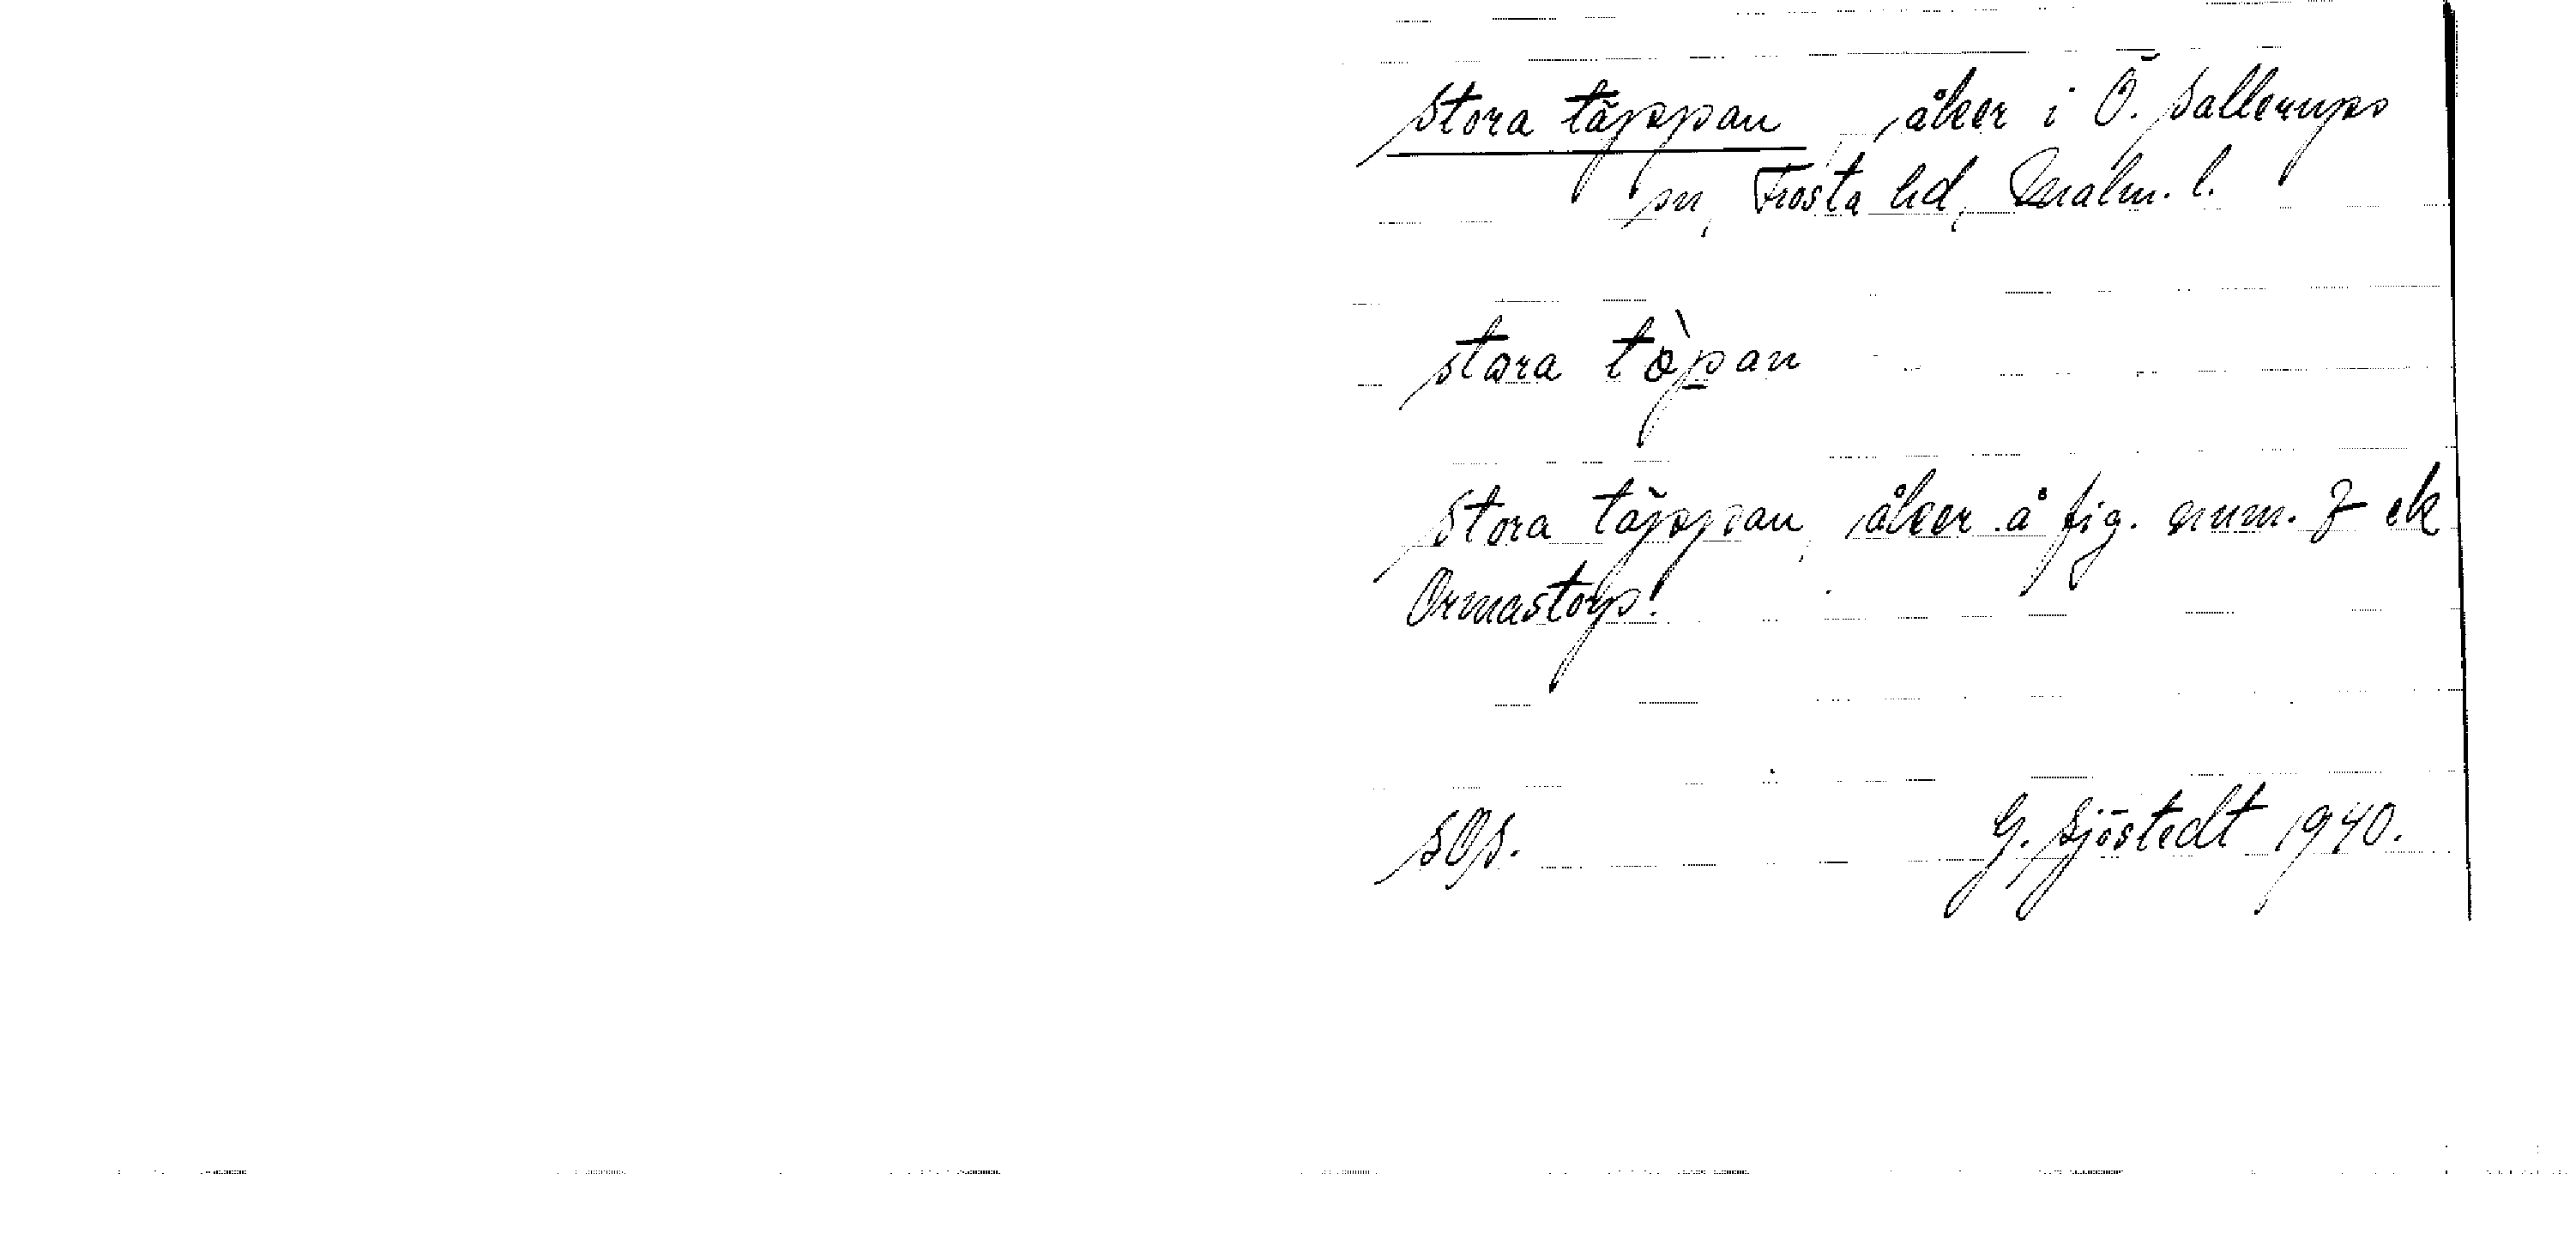 Stora täppan, åker i Ö. Sallerups
sn, Frosta hd, Malm. l.
stora tòpan
Stora täppan, åker å fig. num. 7 ek
Ormastorp.
SOS. G. Sjöstedt 1940.